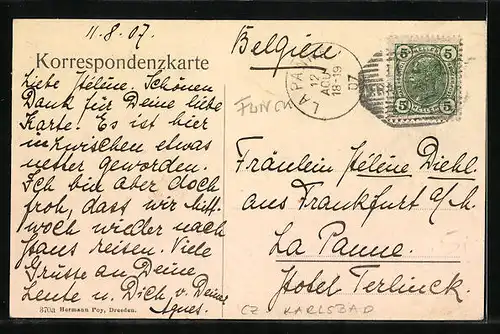 11.8.07.
Korrespondenzkarte
Liebe Hélène, Schönen
Dank für Deine liebe
Karte. Es ist hier
inzwischen etwas
netter geworden.
Ich bin aber doch
froh, dass wir Mitt-
woch wieder nach
Haus reisen. Viele
Grüsse an Deine
Leute u. Dich v. Deiner
Agnes.
370a Hermann Poy, Dresden.
Belgien
LA PANNE
12
AOU
18-19
07
5 5
HELLER HELLER
5 5
Fräulein Hélène Diehl.
aus Frankfurt a/M.
La Panne.
Hotel Terlinck.
CZ KARLSBAD